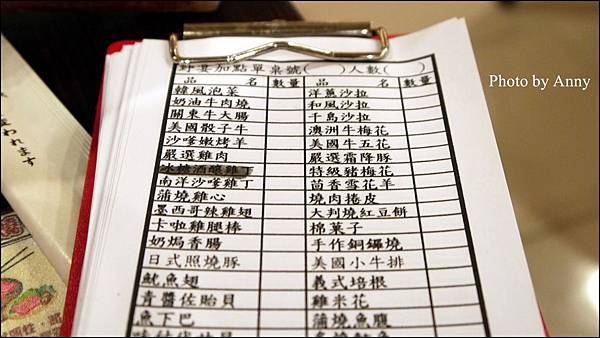 加點單桌號(   )人數(   )
品 名 數量 品 名 數量
韓風泡菜 洋蔥沙拉
奶油牛肉燒 和風沙拉
關東牛大腸 千島沙拉
美國骰子牛 澳洲牛梅花
沙嗲嫩烤羊 美國牛五花
嚴選雞肉 嚴選霜降豚
冰糖酒釀雞丁 特級豬梅花
南洋沙嗲雞丁 茴香雪花羊
蒲燒雞心 燒肉捲皮
墨西哥辣雞翅 大判燒紅豆餅
卡啦雞腿棒 棉菓子
奶焗香腸 手作銅鑼燒
日式照燒豚 美國小牛排
魷魚翅 義式培根
青醬佐貽貝 雞米花
魚下巴 蒲燒魚腹
われます
Photo by Anny